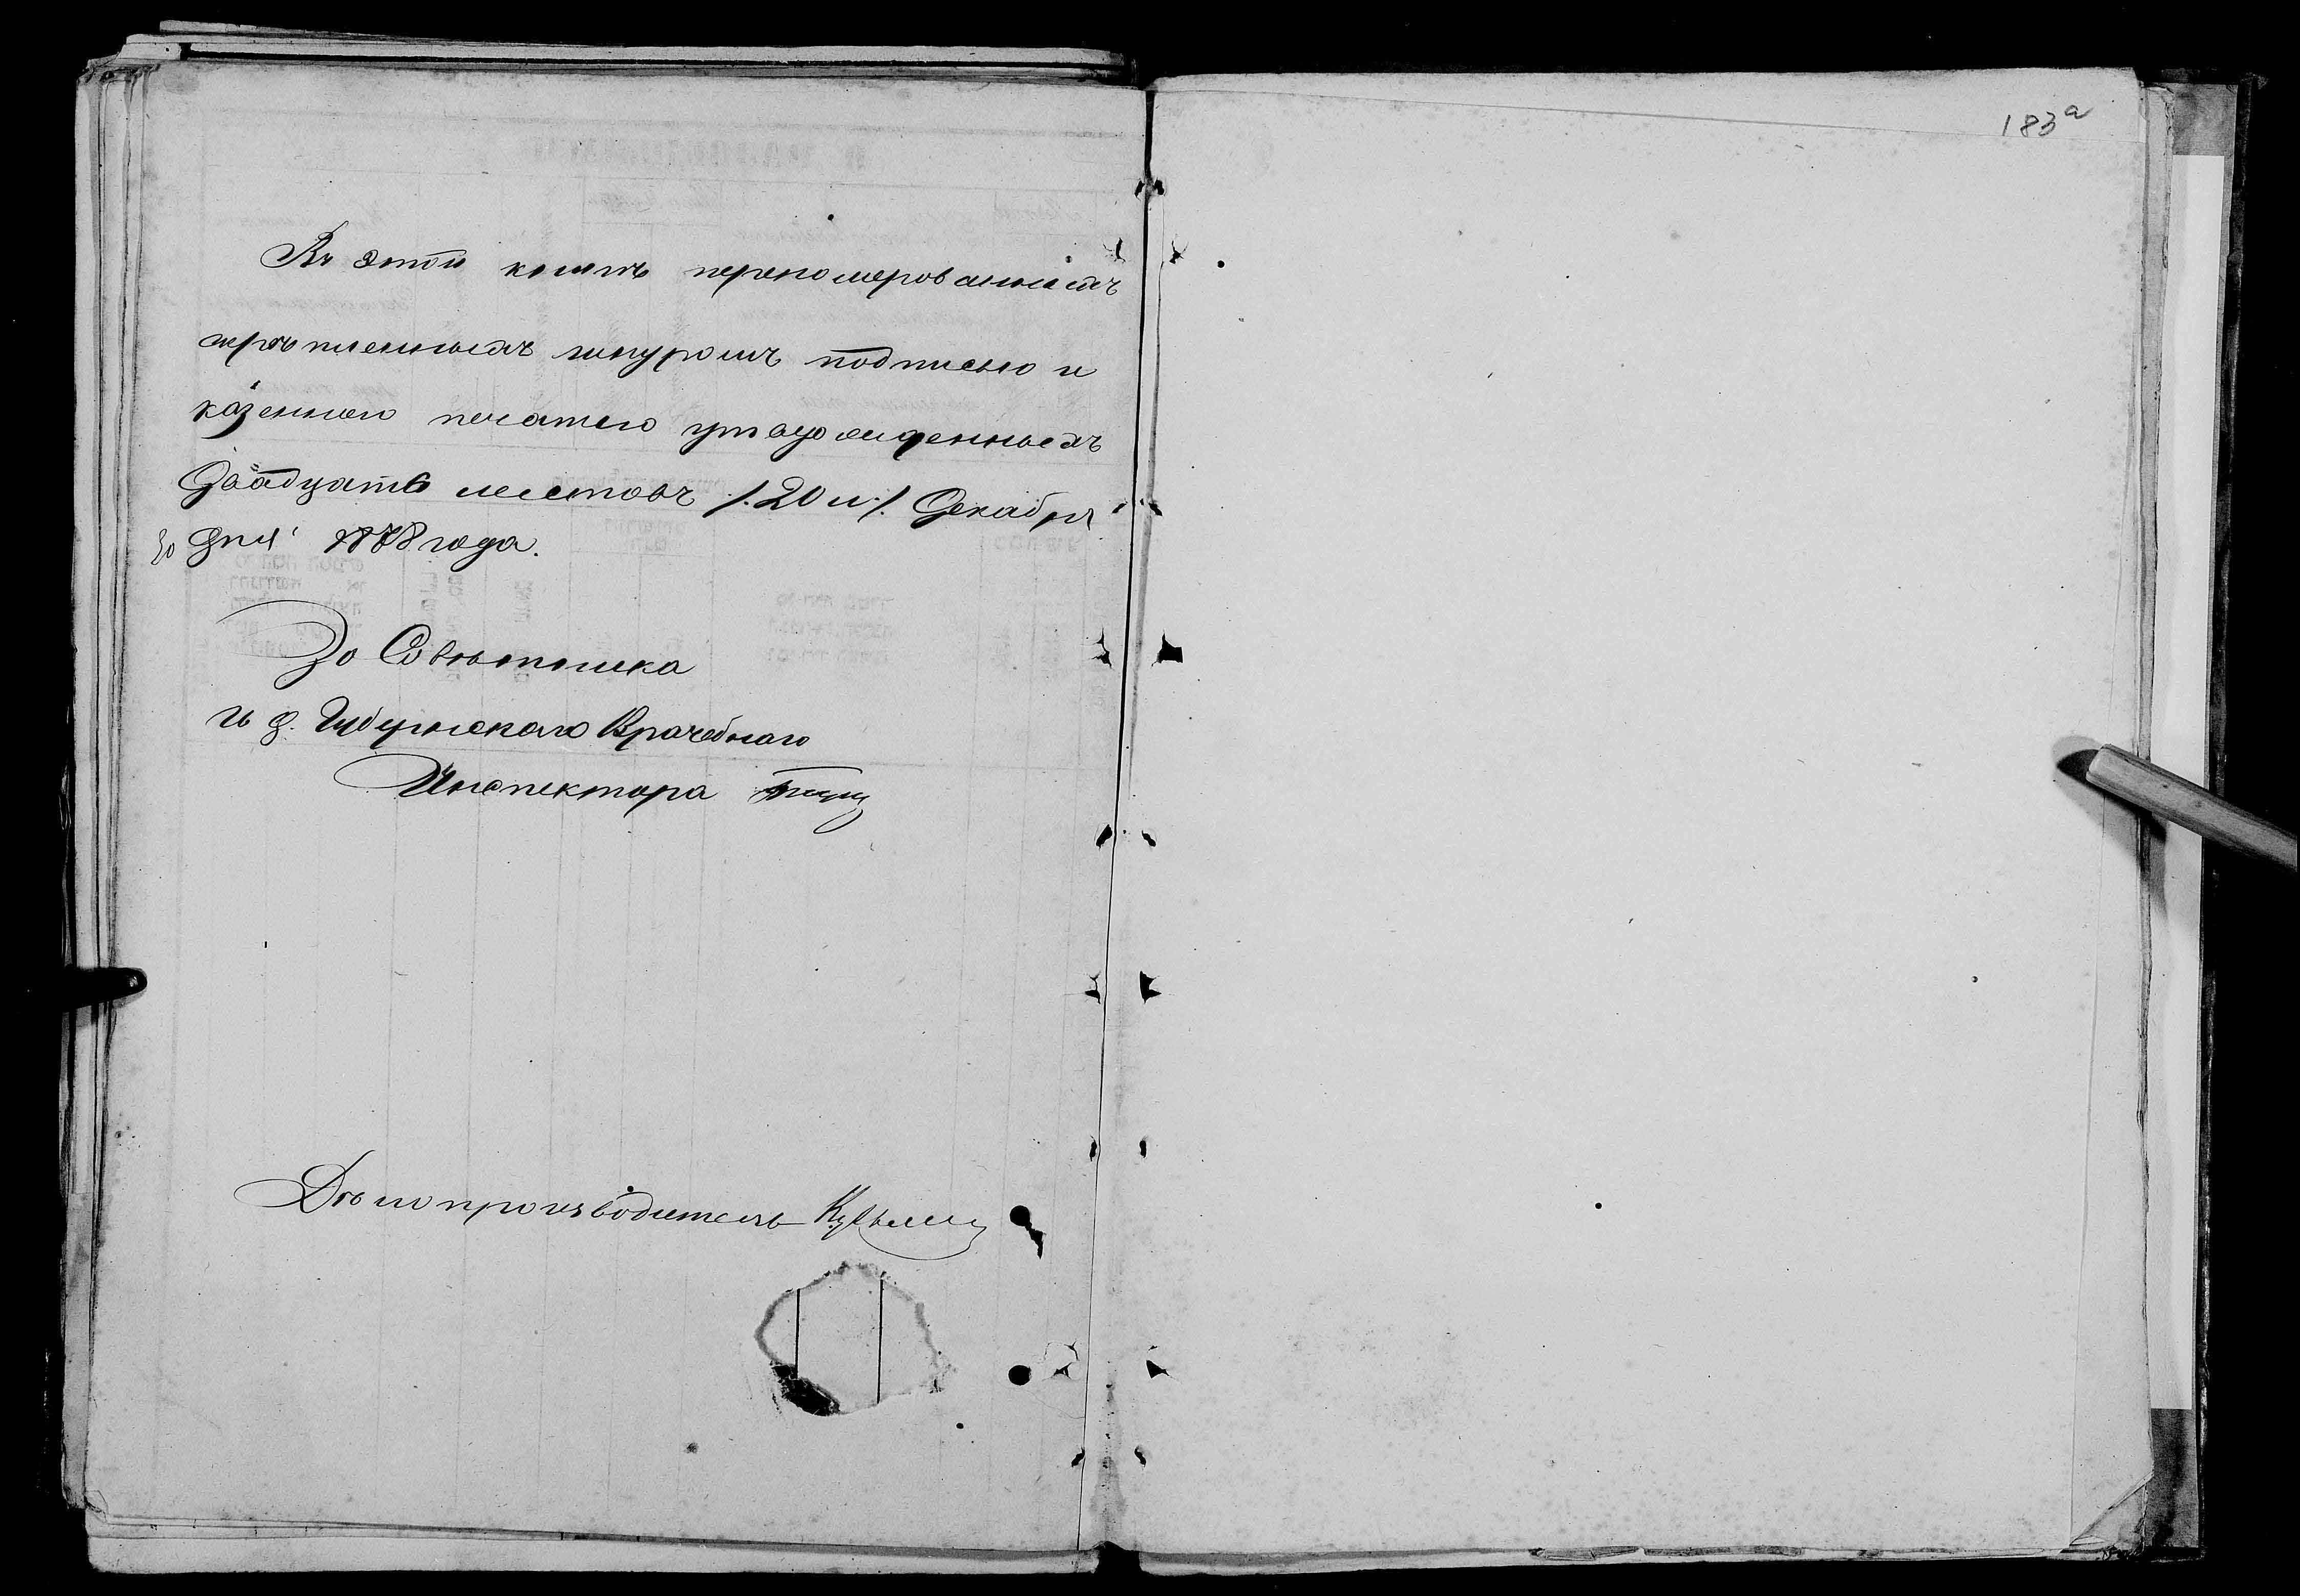 Въ этой книгѣ перенумерованныхъ
скрѣпленныхъ шнуромъ подписью и
казенною печатью утвержденныхъ
Двадцать листовъ /:20 л:/. Декабря
30 дня 1878 года.
За Совѣтника
И д. Губернскаго Врачебнаго
Инспектора
Дѣлопроизводитель
183а